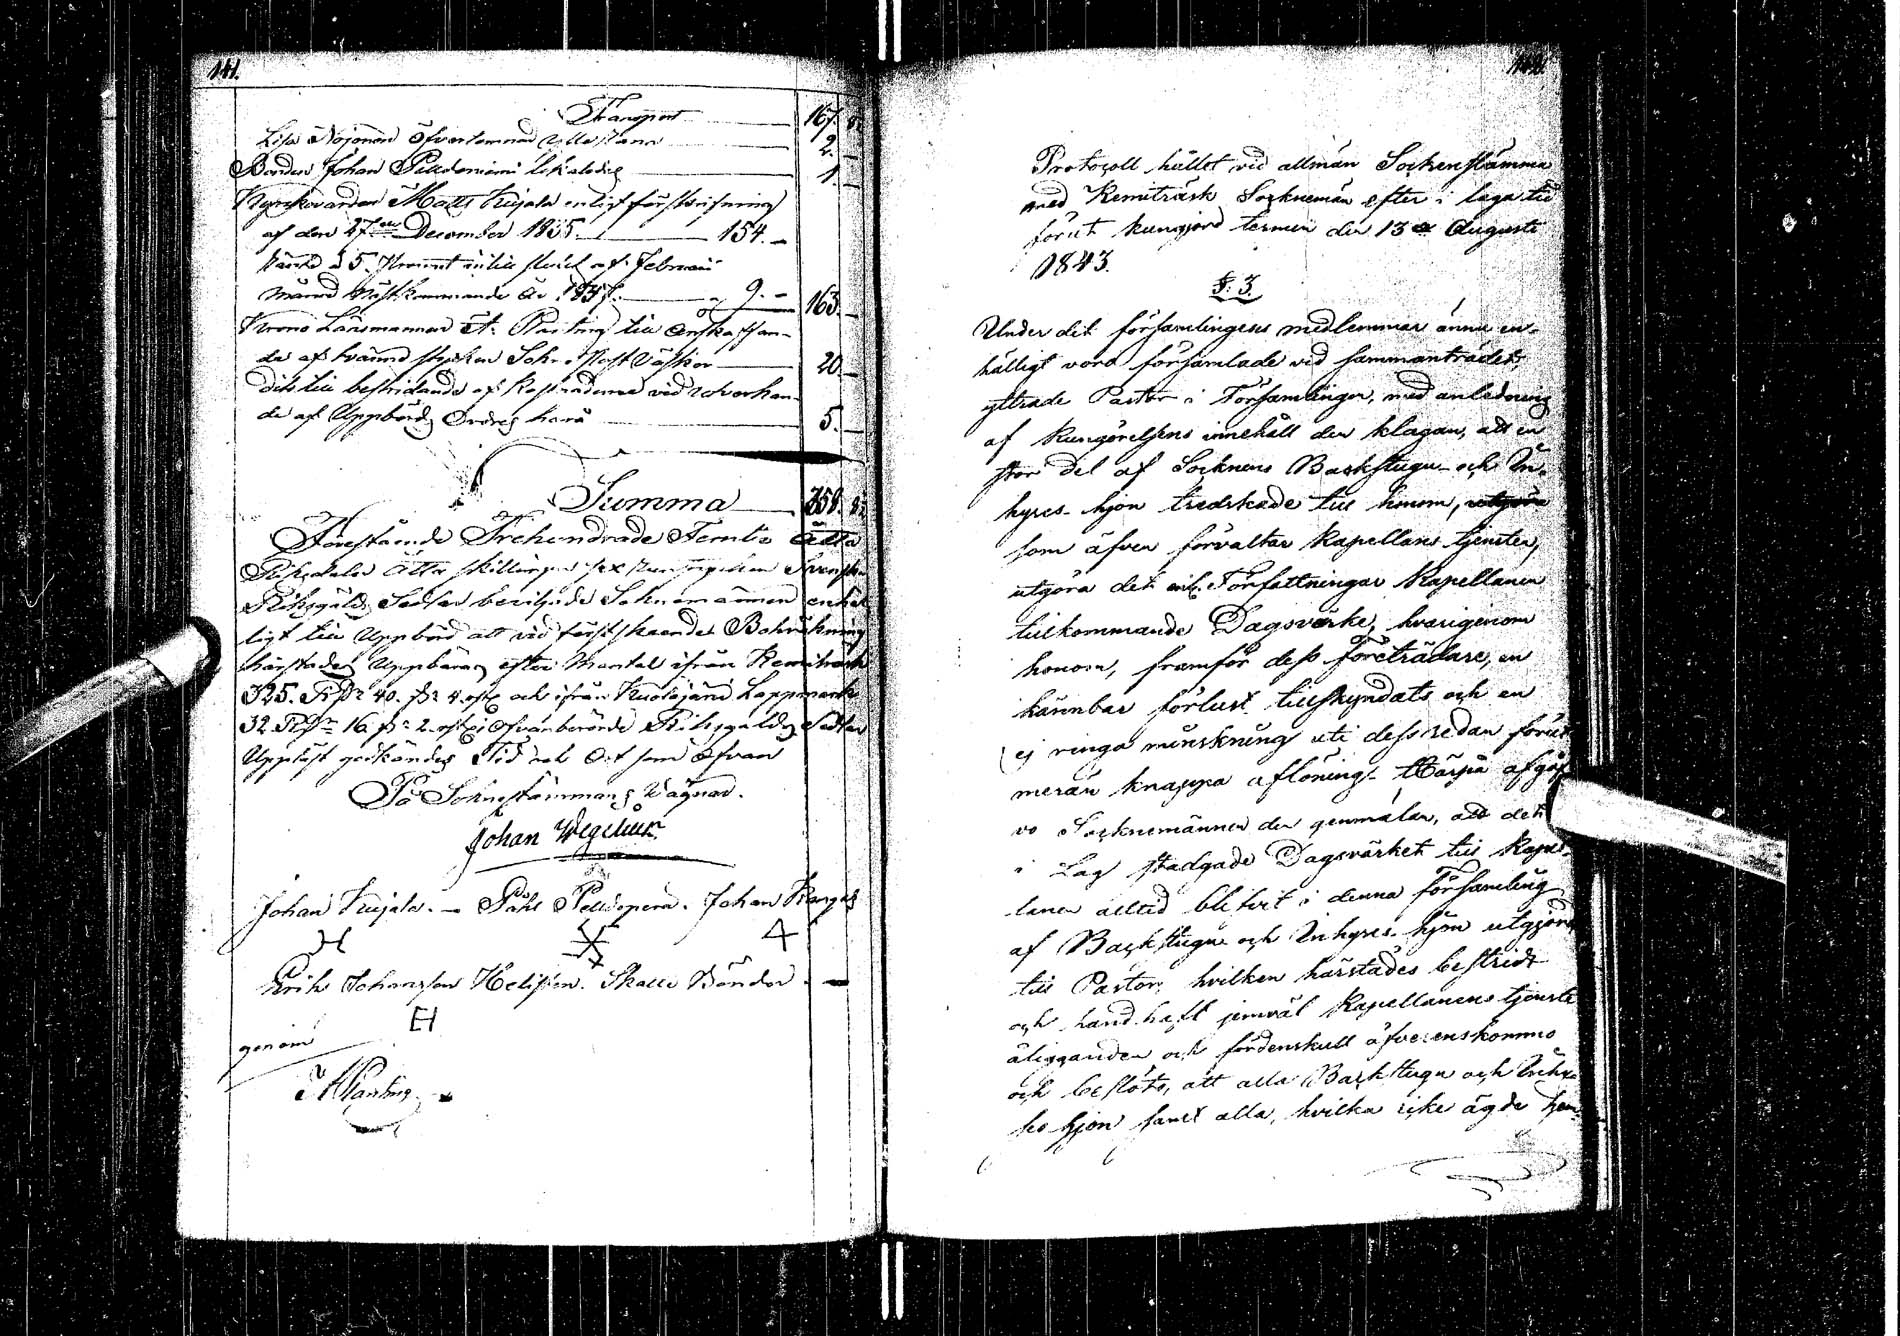 141.
Transport 167. 8.
Lisa Nojonen öfverlemnad Ulla Hana 2. —
Bonden Johan Pelldoniemi likaledes 1. —
Kyrkovärden Matts Kujala enligt förskrifning
af den 27de December 1835. — 154. —
Ränta à 5. Procent intill slutet af Februarii
månad nästkommande År 1837. — 9. — 163. —
Krono Länsmannen A. Planting till anskaffan-
de af tvänne stycken Sokne Post Väskor — 20. —
Dito till bestridande af kostnaderne vid
de af Uppbörds Ordres hära — 5. —
Summa 358. 8.
Förestående Trehundrade Femtio Åtta
Riksdaler Åtta skillingar sex Svenska
Riksgälds Sedlar beviljade Soknemännen enhäl
ligt till Uppbörd att vid först skeende Bohräkning
härstädes Uppbäras efter Mantal ifrån Kemiträsk
325. Rdr 40. s. 4. och ifrån Kuolajärvi Lappmark
32 Rdr 16 s. 2. i Ofvanberörde Riksgälds Sedlar
Uppläst godkändes Tid och Ort som ofvan
På Soknestämmans Vägnar.
Johan Wegelius.
Johan Kujala. — Påhl Pelldopera. Johan Kangas
Erik Johansson Halla Bönder. —
genom
A Planting
Protocoll hållet vid allmän Sockenstämma
med Kemiträsk Socknemän efter i laga tid
förut kungjord termin den 13de Augusti
1843.
§. 3.
Under det församlingens medlemmar ännu en-
hälligt voro församlade vid sammanträdet,
yttrade Pastor i Församlingen, med anledning
af kungörelsens innehåll den klagan, att en
stor del af Socknens Backstugu- och In-
hyres- hjon tredskade till honom,
som äfven förvaltar Kapellans tjensten,
utgöra det enl. Författningar Kapellanen
tillkommande Dagsvärke, hvarigenom
honom, framför dess Företrädare, en
kännbar förlust tillskyndats och en
ej ringa minskning uti dess redan förut
meran knappa aflöning. Härpå afgåf
vo Socknemännen den genmälan, att det
i Lag stadgade Dagsvärket till Kapel-
lanen alltid blifvit i denna Församling
af Backstugu och Inhyres- hjon utgjordt
till Pastor, hvilken härstädes bestridt
och handhaft jemväl Kapellanens tjenste
åligganden och fördenskull öfverenskommo
och beslöto, att alla Backstugu och Inhy-
res hjon samt alla, hvilka icke ägde hem-